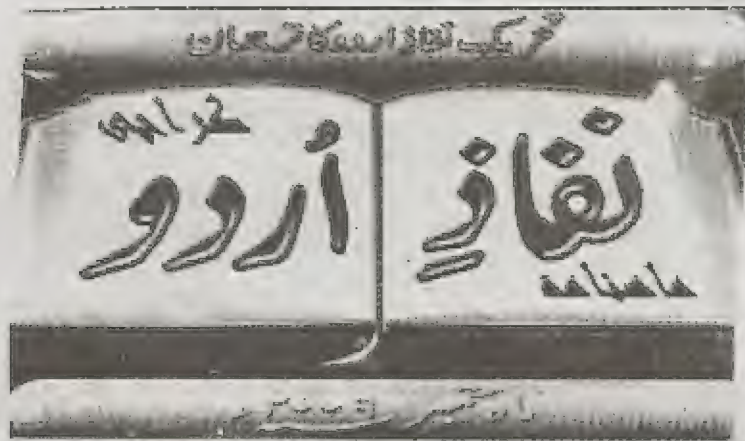 تحریک نفاذ اردو کا ترجمان
ماہنامہ
نفاذِ اُردو
کراچی